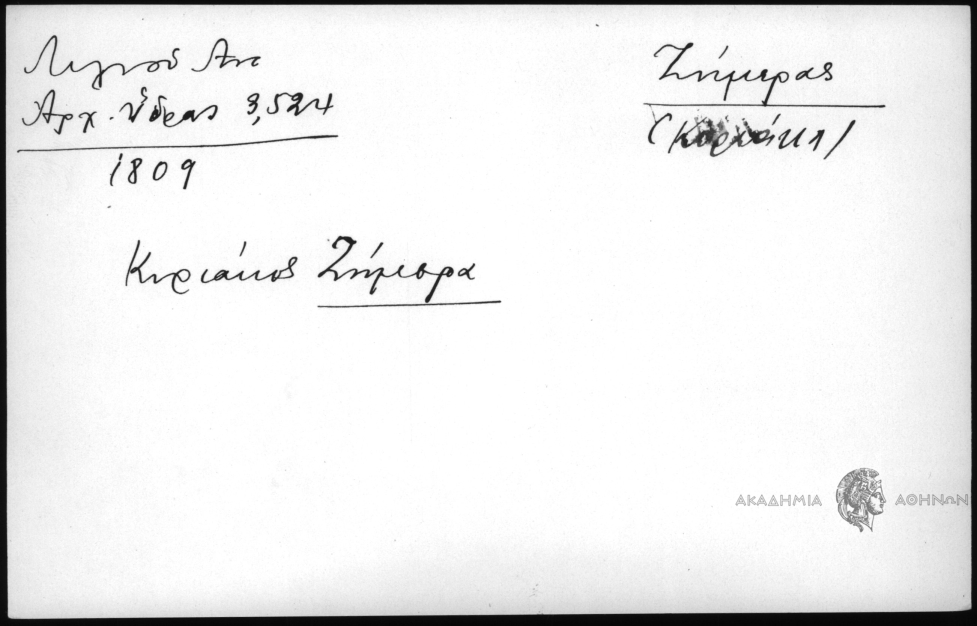 Λιγνοῦ Αντ
Αρχ. Ὕδρας 3,524
1809
Ζήμερας
Κυριάκος Ζήμερα
ΑΚΑΔΗΜΙΑ ΑΘΗΝΩΝ